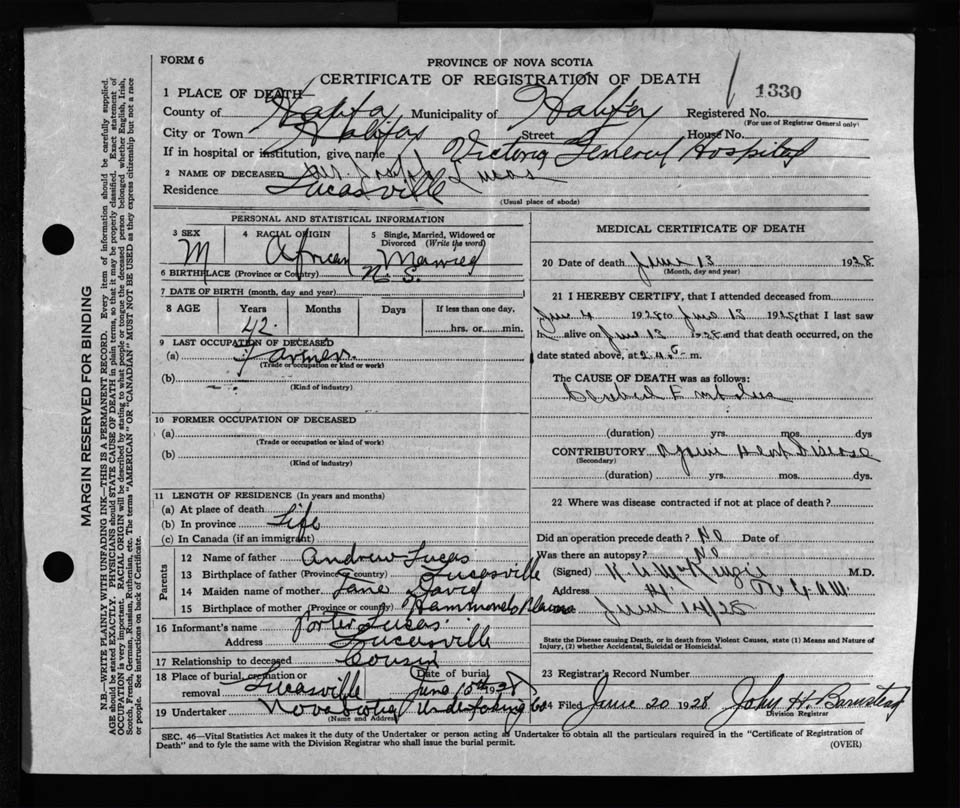 FORM 6
PROVINCE OF NOVA SCOTIA
CERTIFICATE OF REGISTRATION OF DEATH
1330
1 PLACE OF DEATH
County of Halifax Municipality of Halifax Registered No.
(For use of Registrar General only)
City or Town Halifax Street House No.
If in hospital or institution, give name Victoria General Hospital
2 NAME OF DECEASED Mr. Joseph Lucas
Residence Lucasville
(Usual place of abode)
PERSONAL AND STATISTICAL INFORMATION
3 SEX
M
4 RACIAL ORIGIN
African
5 Single, Married, Widowed or Divorced (Write the word)
Married
6 BIRTHPLACE (Province or Country) N.S.
7 DATE OF BIRTH (month, day and year)
8 AGE Years Months Days If less than one day,
42 hrs. or min.
9 LAST OCCUPATION OF DECEASED
(a) Farmer
(Trade or occupation or kind or work)
(b)
(Kind of industry)
10 FORMER OCCUPATION OF DECEASED
(a)
(Trade or occupation or kind of work)
(b)
(Kind of industry)
11 LENGTH OF RESIDENCE (In years and months)
(a) At place of death
(b) In province Life
(c) In Canada (if an immigrant)
Parents
12 Name of father Andrew Lucas
13 Birthplace of father (Province or country) Lucasville
14 Maiden name of mother Jane David
15 Birthplace of mother (Province or country) Hammonds Plains
16 Informant's name Porter Lucas
Address Lucasville
17 Relationship to deceased Cousin
18 Place of burial, cremation or removal Lucasville
Date of burial June 1928
19 Undertaker Nova Scotia Undertaking Co
(Name and Address)
MEDICAL CERTIFICATE OF DEATH
20 Date of death June 13 1928
(Month, day and year)
21 I HEREBY CERTIFY, that I attended deceased from
June 4 1928 to June 13 1928 that I last saw
h alive on June 13 1928 and that death occurred, on the
date stated above, at m.
The CAUSE OF DEATH was as follows:
Cerebral Embolus
(duration) yrs. mos. dys
CONTRIBUTORY Heart Disease
(Secondary)
(duration) yrs. mos. dys.
22 Where was disease contracted if not at place of death?
Did an operation precede death? No Date of
Was there an autopsy? No
(Signed) M.D.
Address
June 14/28
State the Disease causing Death, or in death from Violent Causes, state (1) Means and Nature of Injury, (2) whether Accidental, Suicidal or Homicidal.
23 Registrar's Record Number
24 Filed June 20 1928 John H. Barnstead
Division Registrar
SEC. 46—Vital Statistics Act makes it the duty of the Undertaker or person acting as Undertaker to obtain all the particulars required in the "Certificate of Registration of
Death" and to fyle the same with the Division Registrar who shall issue the burial permit.
(OVER)
MARGIN RESERVED FOR BINDING
N.B.—WRITE PLAINLY, WITH UNFADING INK—THIS IS A PERMANENT RECORD. Every item of information should be carefully supplied.
AGE should be stated EXACTLY. PHYSICIANS should STATE CAUSE OF DEATH in plain terms, so that it may be properly classified. Exact statement of
OCCUPATION is very important. RACIAL ORIGIN will be described by stating to what people or tongue the deceased person belonged whether English, Irish,
Scotch, French, German, Russian, Ruthenian, etc. The terms "AMERICAN" OR "CANADIAN" MUST NOT BE USED as they express citizenship but not a race
or people. See instructions on back of Certificate.